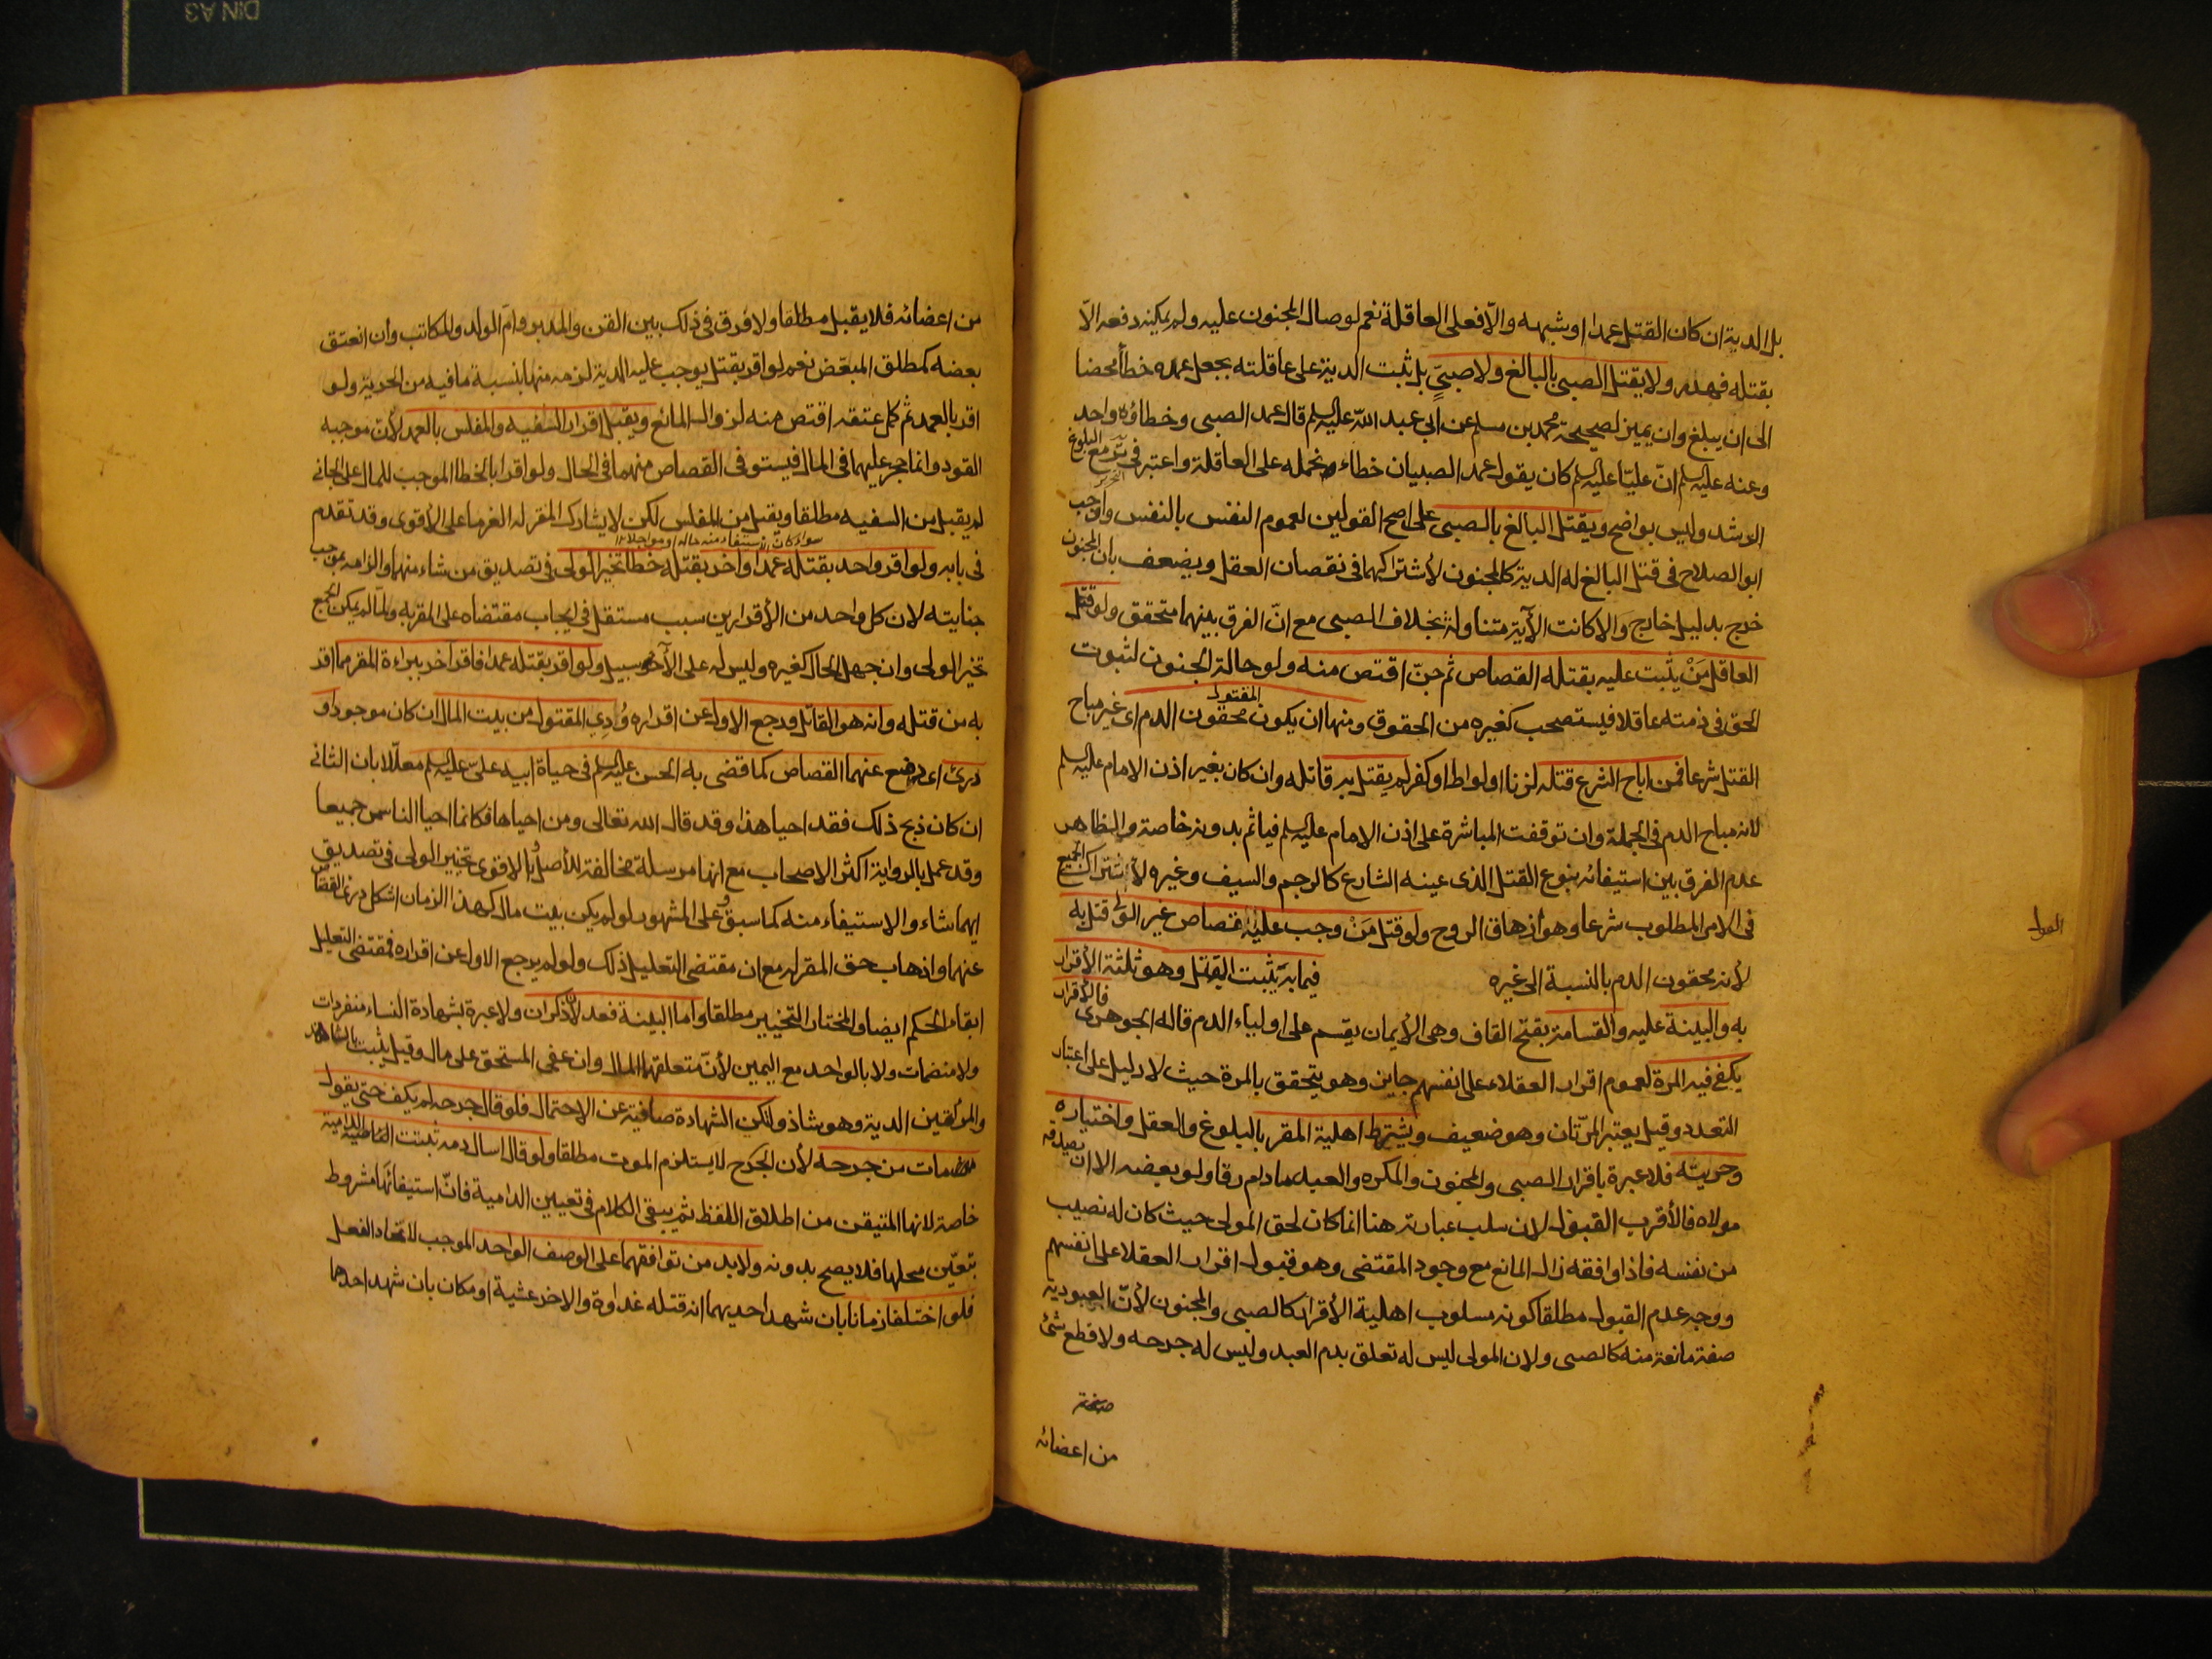 بل الدية ان كان القتل عمدا او شبهه والّا فعلى العاقلة نعم لو صال المجنون عليه ولم يمكنه دفعه الّا
بقتله فهدر ولا يقتل الصبي بالبالغ ولا صبيٍّ بل ثبت الدية على عاقلته بجعل عمده خطأ محضا
الى ان يبلغ وان يميز لصحيحة محمد بن مسلم عن ابي عبد الله عليه السلم قال عمد الصبي وخطاؤه واحد
وعنه عليه السلم انّ عليّا عليه السلم كان يقول عمد الصبيان خطاء يحمله على العاقلة واعتبر في مع البلوغ
التحرير
الرشد وليس بواضح ويقتل البالغ بالصبي على اصح القولين لعموم النفس بالنفس واوجب
ابو الصلاح في قتل البالغ له الدية كالمجنون لأشتراكهما في نقصان العقل ويضعف بان المجنون
خرج بدليل خارج وَالا كانت الآية متناولة بخلاف الصبي مع انّ الفرق بينهما متحقق ولو قتل
العاقل مَنْ يثبت عليه بقتله القصاص ثم جنّ اقتص منه ولو حالة الجنون لثبوت
الحق في ذمته عاقلا فيستصحب كغيره من الحقوق ومنها ان يكون المقتول محقون الدم اى غير مباح
القتل شرعا فمن اباح الشرع قتله لزنا او لواط او كفر لم يقتل به قاتله وان كان بغير اذن الامام عليه السلم
لانه مباح الدم في الجملة وان توقفت المباشرة على اذن الامام عليه السلم فياثم بدونه خاصة والظاهر
عدم الفرق بين استيفائه بنوع القتل الذى عينه الشارع كالرجم والسيف وغيره لأشتراك الجميع
في الامر المطلوب شرعا وهو أزهاق الروح ولو قتل مَنْ وجب عليه قصاص غير الولى قتل به
لأنه محقون الدم بالنسبة الى غيره فيما به يَثبت القتل وهو ثلثة الأقرار
به والبينة عليه والقسامة بفتح القاف وهى الأيمان يقسم على اولياء الدم قاله الجوهرى فالأقرار
يكفي فيه المرة لعموم اقرار العقلاء على انفسهم جايز وهو يتحقق بالمرة حيث لا دليل على اعتبار
التعدد وقيل يعتبر المرّتان وهو ضعيف ويشترط اهلية المقر بالبلوغ والعقل واختياره
وحريته فلا عبرة باقرار الصبي والمجنون والمكره والعبد مادام رقا ولو بعضه الا ان يصدقه
مولاه فالأقرب القبول لان سلب عبارته هنا انما كان لحق المولى حيث كان له نصيب
من نفسه فاذا وافقه زال المانع مع وجود المقتضى وهو قبول اقرار العقلا على انفسهم
ووجه عدم القبول مطلقا كونه مسلوب اهلية الأقرار كالصبي والمجنون لأنّ العبودية
صفة مانعة منه كالصبي ولان المولى ليس له تعلق بدم العبد وليس له جرحه ولا قطع شئ
من اعضائه
من اعضائه فلا يقبل مطلقا ولا فرق في ذلك بين القن والمدبر وام الولد والمكاتب وأن انعتق
بعضه كمطلق المبعّض نعم لو اقر بقتل يوجب عليه الدية لزمه منها بنسبة ما فيه من الحرية ولو
اقر بالعمد ثم كمل عتقه اقتص منه لزوال المانع ويقبل اقرار السفيه والمفلس بالعمد لأنّ موجبه
القود وانما حجر عليهما في المال فيستوفى القصاص منهما في الحال ولو اقرا بالخطا الموجب للمال على الجانى
لم يقبل من السفيه مطلقا ويقبل من المفلس لكن لا يشارك المقر له الغرما على الأقوى وقد تقدم
في بابه ولو اقر واحد بقتله عمدا واخر بقتله خطأ تخير المولى في تصديق من شاء منهما والزامه بموجب
جنايته لان كل واحد من الأقرارين سبب مستقل في ايجاب مقتضاه على المقر به ولمّا لم يكن الجمع
تخير الولى وان جهل الحال كغيره وليس له على الآخر سبيل ولو اقر بقتله عمدا فاقر آخر ببراءة المقر مما اقر
به من قتله وانه هو القاتل ورجع الاول عن اقراره وُدِى المقتول من بيت المال ان كان موجودا و
درئ اى رفع عنهما القصاص كما قضى به الحسن عليه السلم في حياة ابيه علىّ عليه السلم معلّلا بان الثانى
ان كان ذبح ذلك فقد احيا هذا وقد قال الله تعالى ومن احياها فكانما احيا الناس جميعا
وقد عمل بالرواية اكثر الاصحاب مع انها مرسلة مخالفة للأصل والاقوى تخيير الولى في تصديق
ايهما شاء والاستيفاء منه كما سبق وعلى المشهور لو لم يكن بيت مال كهذا الزمان اشكل درء القصاص
عنهما واذهاب حق المقر له مع ان مقتضى التعليل ذلك ولو لم يرجع الاول عن اقراره فمقتضى التعليل
ابقاء الحكم ايضا والمختار التخيير مطلقا واما البينة فعدلان ذكران ولا عبرة بشهادة النساء منفردات
ولا منضمات ولا بالواحد مع اليمين لأنّ متعلقهما المال وان عفى المستحق على مال وقيل يثبت بالشاهد
والمرأتين الدية وهو شاذ ولتكن الشهادة صافية عن الاحتمال فلو قال جرحه لم يكف حتى يقول
مات من جرحه لأن الجرح لا يستلزم الموت مطلقا ولو قال اسال دمه ثبتت الدامية
خاصة لانها المتيقن من اطلاق اللفظ ثم يبقى الكلام في تعيين الدامية فانّ استيفائها مشروط
بتعيّن محلها فلا يصح بدونه ولا بد من توافقهما على الوصف الواحد الموجب لأتحاد الفعل
فلو اختلفا زمانا بان شهد احديهما انه قتله غداوة والاخر عشية او مكان بان شهد احدهما